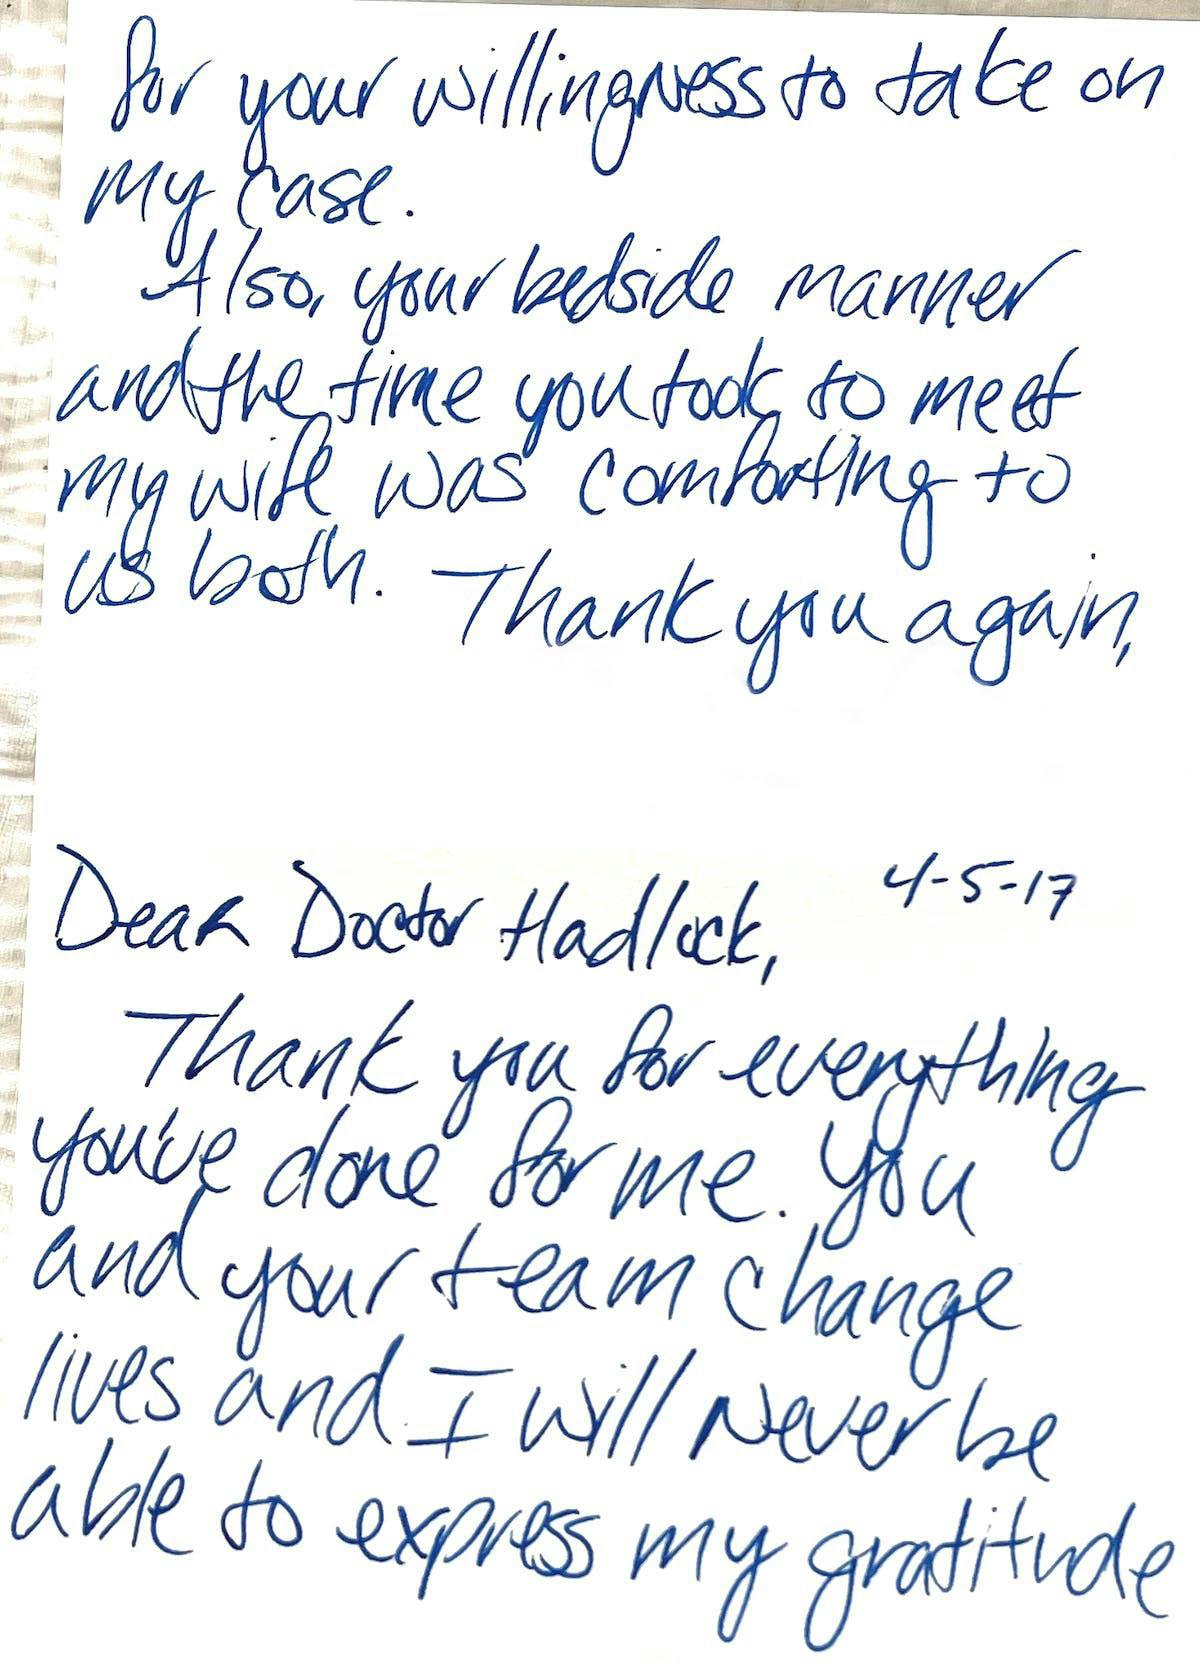 for your willingness to take on
my case.
Also, your bedside manner
and the time you took to meet
my wife was comforting to
us both. Thank you again,
Dear Doctor Hadlock, 4-5-17
Thank you for everything
you've done for me. You
and your team change
lives and I will never be
able to express my gratitude